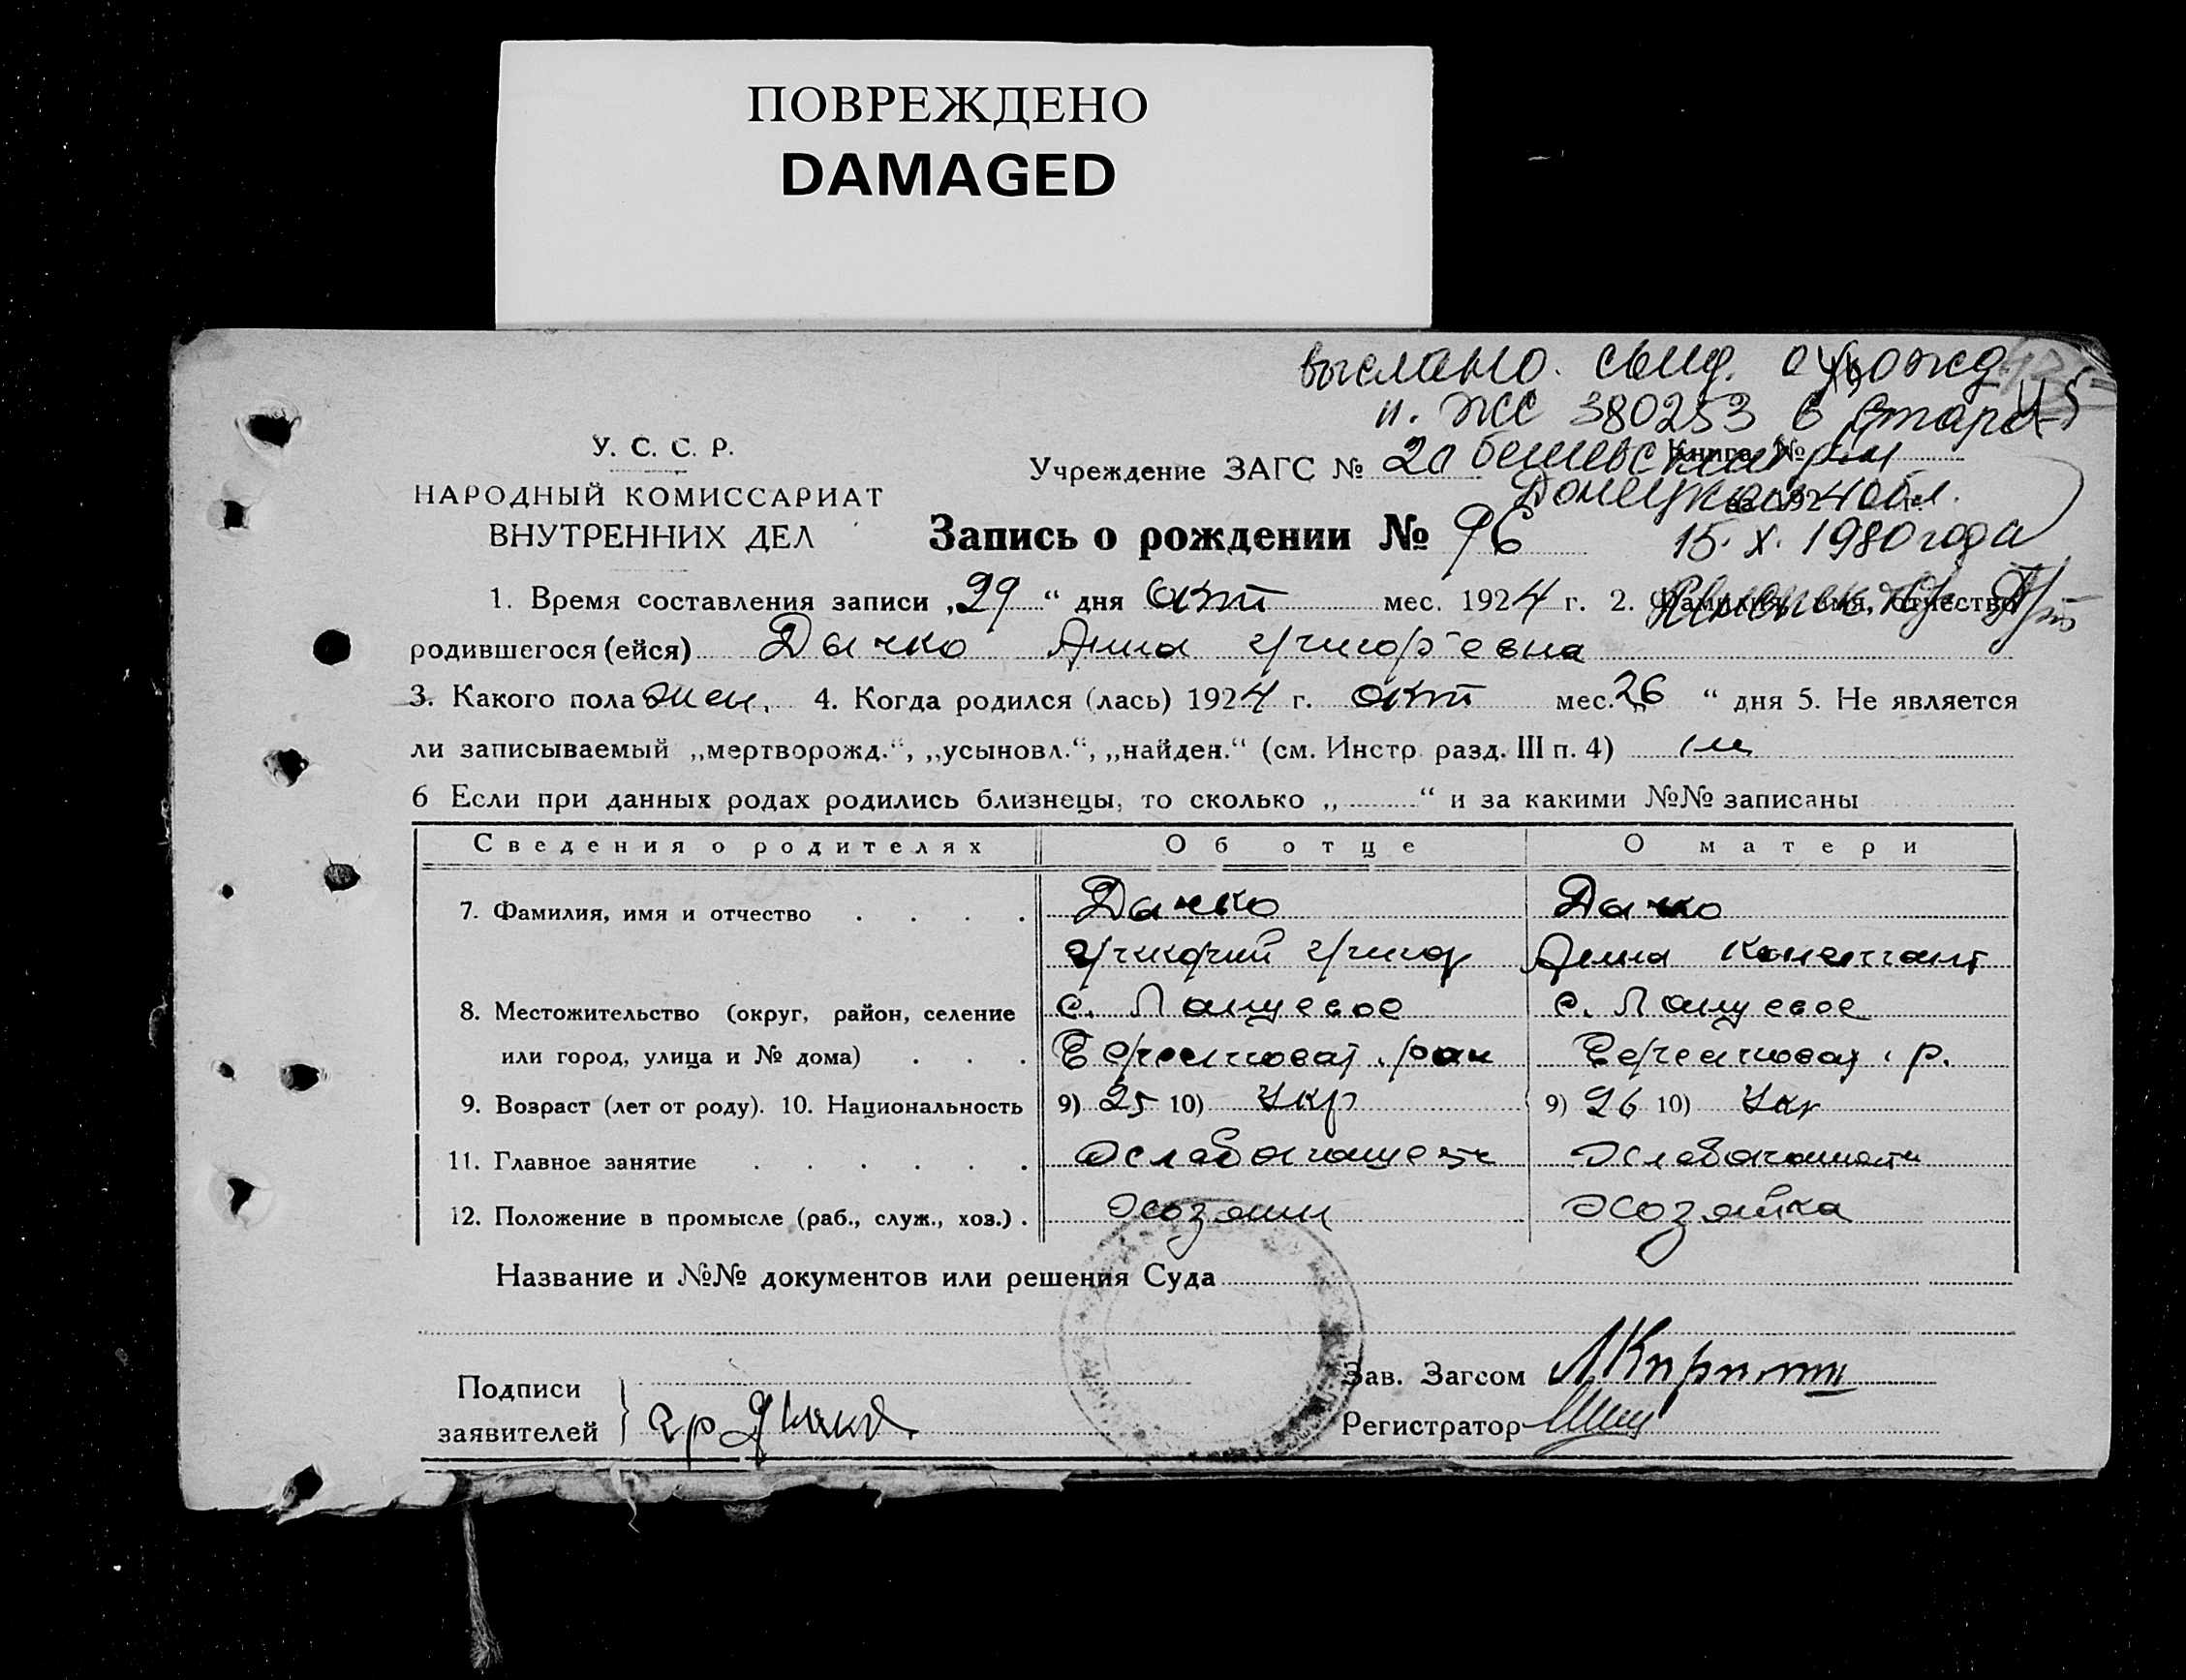 ПОВРЕЖДЕНО
DAMAGED
выслано. свид. о рожд.
н. ЖС 380253 в Старо-
У. С. С. Р.
Учреждение ЗАГС № 20 Книга №
бешевский р-н
НАРОДНЫЙ КОМИССАРИАТ
Донецкой обл.
за 1924 г.
ВНУТРЕННИХ ДЕЛ
Запись о рождении № 96
15. X. 1980 года
1. Время составления записи „29“ дня окт мес. 1924 г. 2. Фамилия, имя, отчество
родившегося (ейся) Дачко Анна Григорьевна
3. Какого пола жен. 4. Когда родился (лась) 1924 г. окт мес. 26 “ дня 5. Не является
ли записываемый „мертворожд.“, „усыновл.“, „найден.“ (см. Инстр. разд. III п. 4)
6 Если при данных родах родились близнецы, то сколько „ “ и за какими №№ записаны
Сведения о родителях Об отце О матери
7. Фамилия, имя и отчество Дачко Дачко
Григорий Григор Анна Констант
8. Местожительство (округ, район, селение с. Лануевое с. Лануевое
или город, улица и № дома)
9. Возраст (лет от роду). 10. Национальность 9) 25 10) Укр 9) 26 10) Укр
11. Главное занятие Хлебопашец
12. Положение в промысле (раб., служ., хоз.) Хозяин Хозяйка
Название и №№ документов или решения Суда
Зав. Загсом
Подписи
заявителей гр Дачко
Регистратор